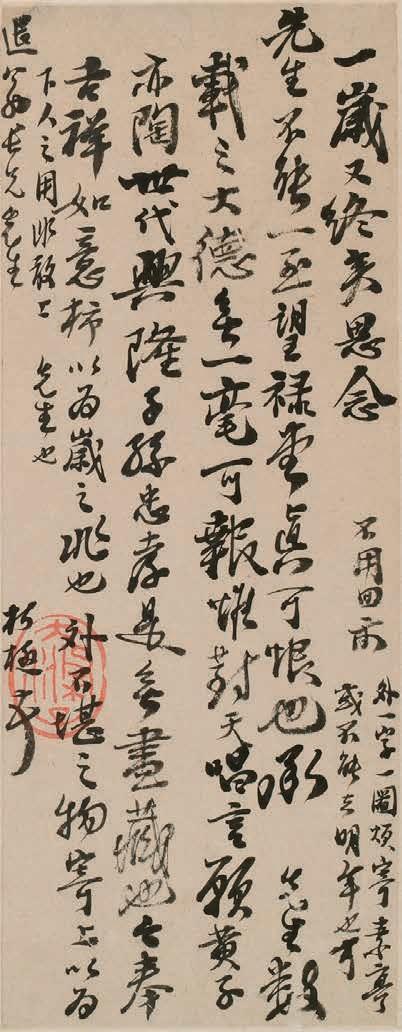 一歲又終矣思念
先生不能一面望祿堂真可恨也承 先生數
載之大德無一毫可報惟對天唱言願黃子
亦陶世代興隆子孫忠孝是無盡藏也今奉
吉祥如意柿以為歲之兆也 外不堪之物寄上以為
下人之用非敢上 先生也
退翁長兄先生
不用回示
外一字一圖煩寄素亭
或不能去明年也可